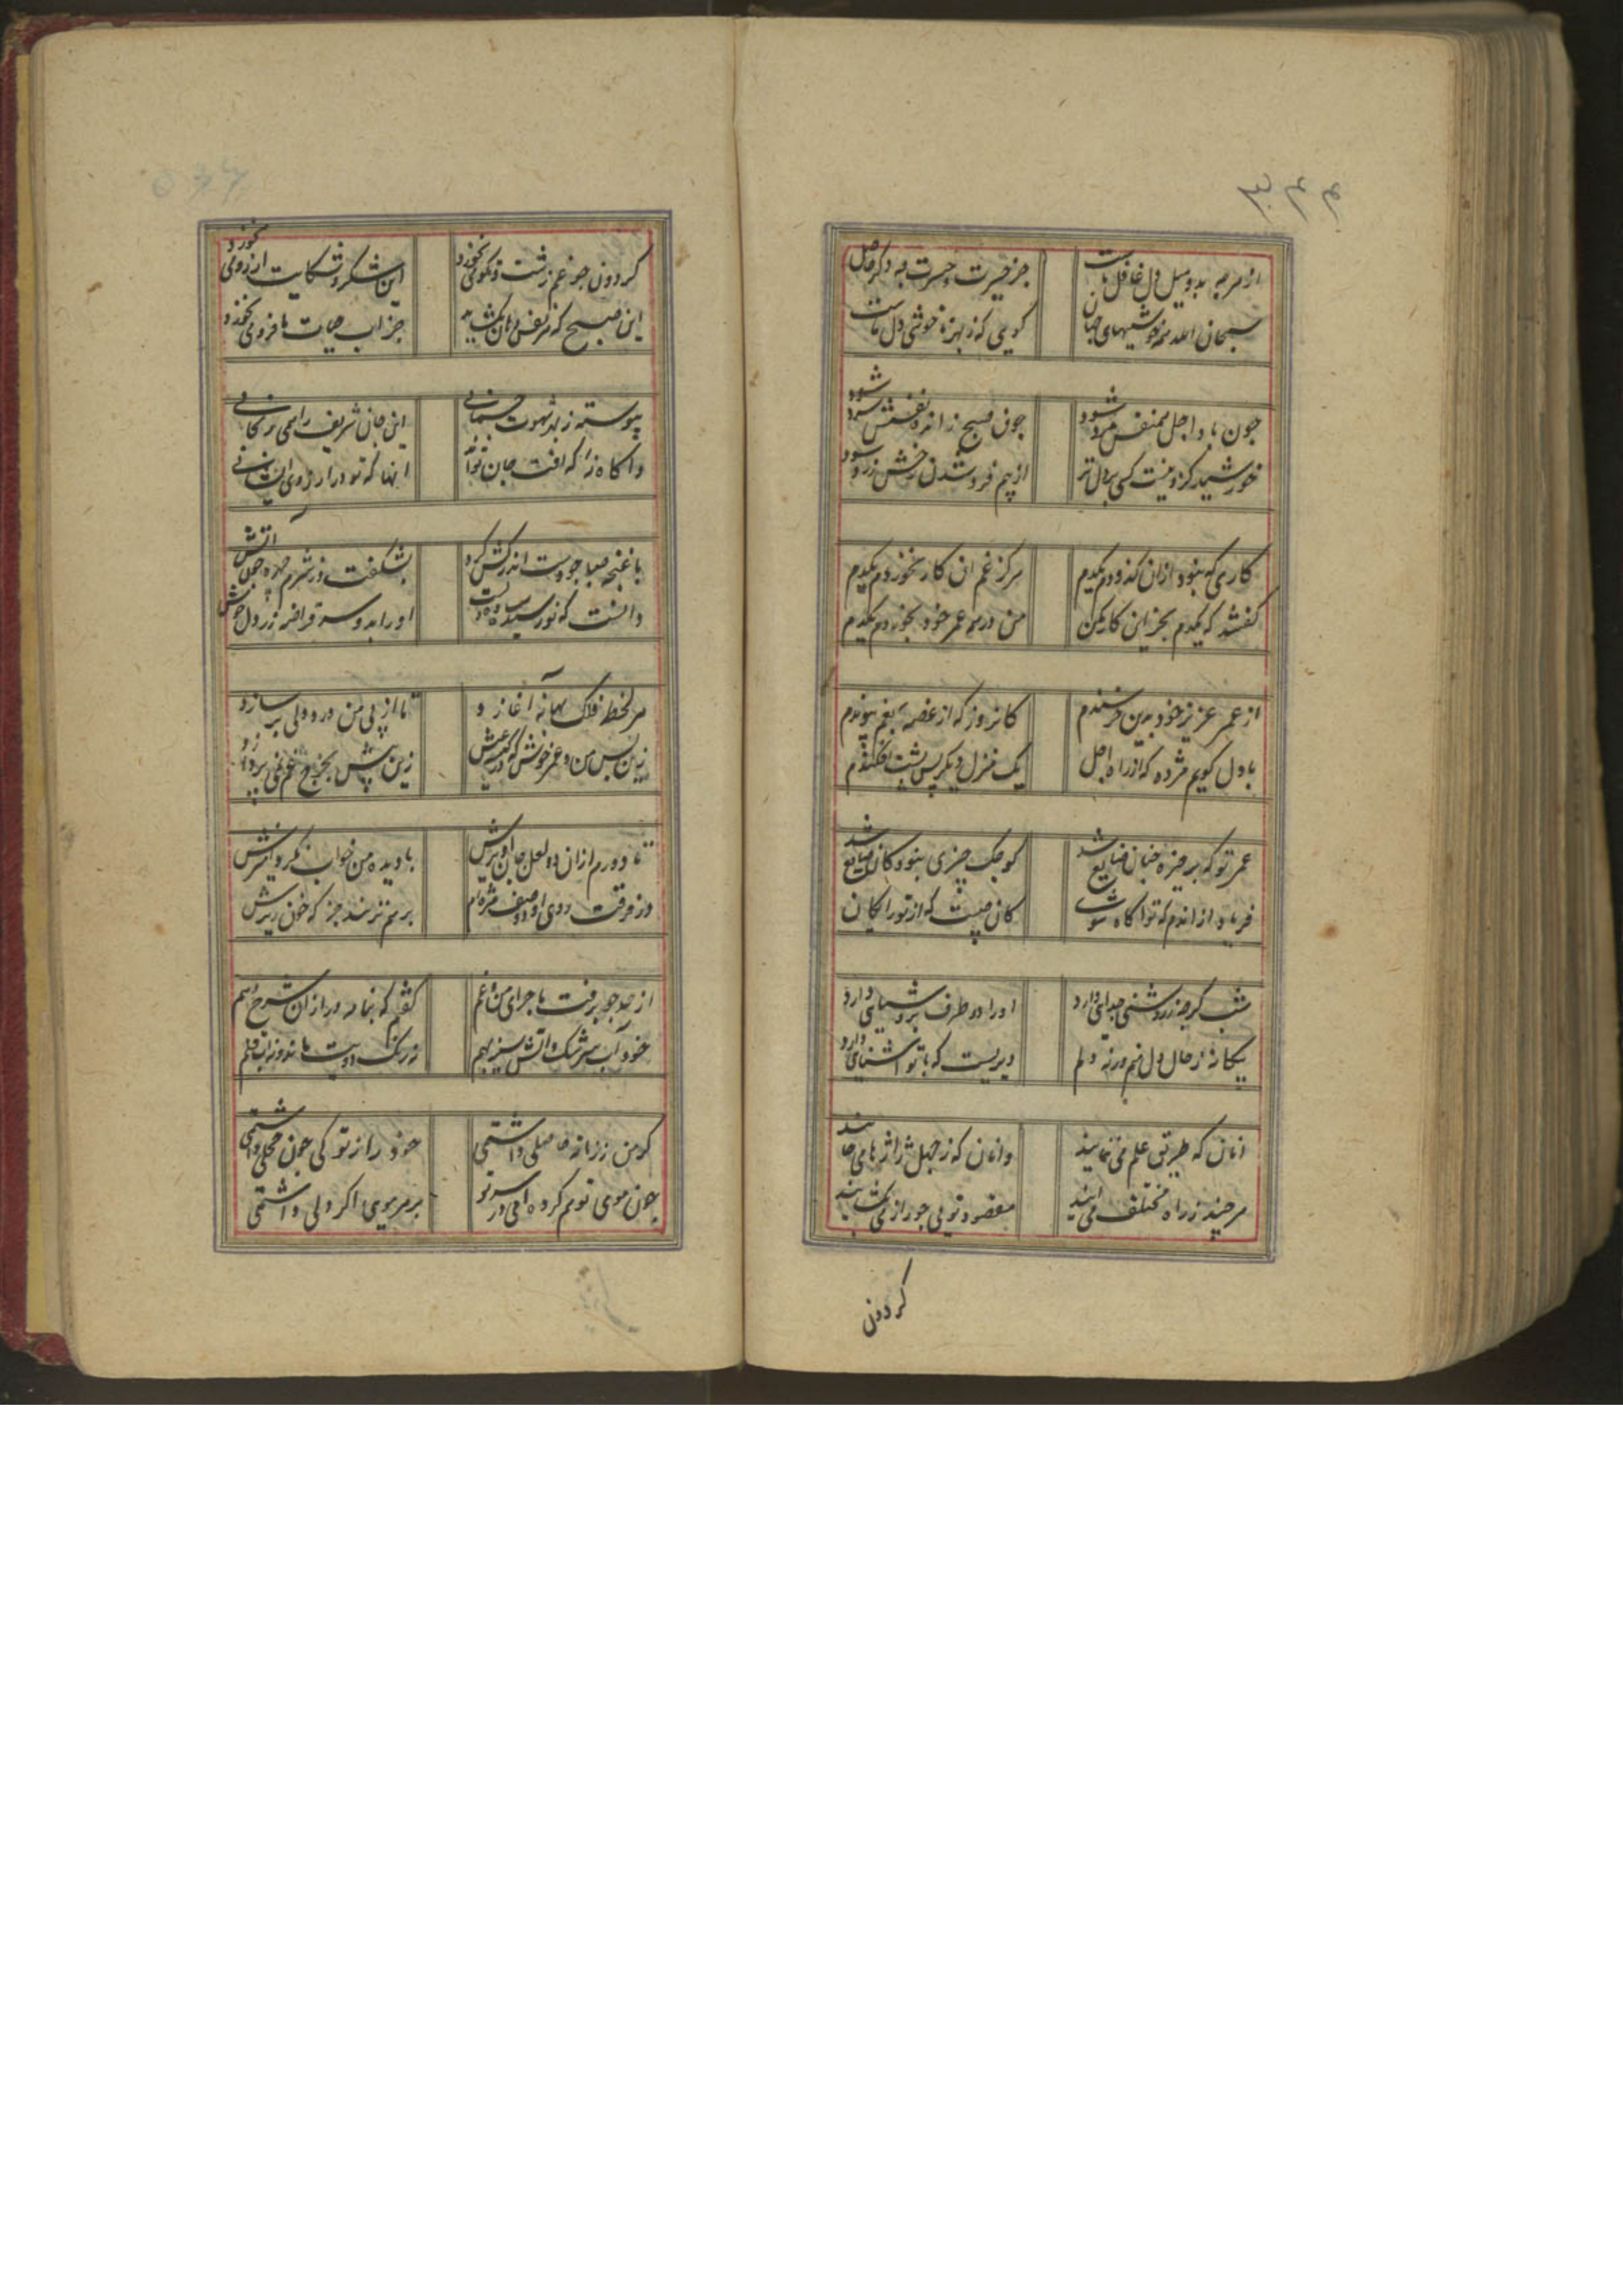 از هرچه بدو میل دل غافل ماست
جز حیرت و حسرت چه دگر حاصل ماست
سبحان الله همه خوشیهای جهان
گویی که ز بهر ناخوشی دل ماست
چون باد اجل همنفس مرد شود
چون صبح ز اندوه نفسش سرد شود
خورشید کزو نیست کسی پردل تر
از بیم فروشدن رخش زرد شود
کاری که نبود ازان گذردم یکدم
هرگز غم آن کار نخوردم یکدم
گفتند که یکدم بخر این کار بکن
من در همه عمر خود نخوردم یکدم
از عمر عزیز خود بدین خرسندم
کانروز که از غصه بغم پیوندم
با دل گویم مژده که از راه اجل
یک منزل دیگر پس پشت افکندم
عمر تو که بر خیره چنان ضایع شد
کوچک چیزی نبود کان ضایع شد
فریاد از اندم که تو آگاه شوی
کان چیست که از تو رایگان
شب گرچه ز روشنی جدایی دارد
او را دو طرف بروشنایی دارد
بیگانه ز حال دل نیم ورنه دلم
دیریست که با تو آشنایی دارد
آنان که طریق علم می‌نمایند
وانان که ز جهل ژاژها می‌خایند
هر چند ز راه مختلف می‌آیند
مقصود تویی چو راز
گردون
گردون چو غم زشت و نکوئی نخورد
این شکر و شکایت آرزوئی نخورد
این صبح که هر نفس دهان بگشاید
جز آب حیات ما فروئی نخورد
پیوسته ز بهر شهوت جسمانی
این جان شریف را همی رنجانی
واگاه نه که آفت جان تواند
آنها که تو در آرزوی ایشانی
با غنچه صبا چو دست اندر کش کرد
بشکفت و ز شرم چهره چون آتش
دانست که نو رسیده
او را بدو سه قراضه زر دل خوش
هر لحظه فلک بهانه آغازد
تا از پی من درد دلی بر سازد
زین پس من و عمر خوش که
زین بیش بخرج غم نمی‌پردازد
تا دورم ازان دو لعل جان آویزش
با دیده من خواب نکرد آمیزش
وز فرقت روی او دو صف مژه‌ام
بر هم نزنند جز که خون ریزش
از حد چو برفت ماجرای من و غم
گفتم که بنامه در ازان شرح دهم
خود آب سرشک و آتش سینه بهم
نه رنگ دویت ماند و نه آب قلم
گر من ز زمانه حاصلی داشتمی
خود را ز تو کی چون خجلی داشتمی
چون موی توم گرو امی در سر تو
بر هر مویی اگر دلی داشتمی